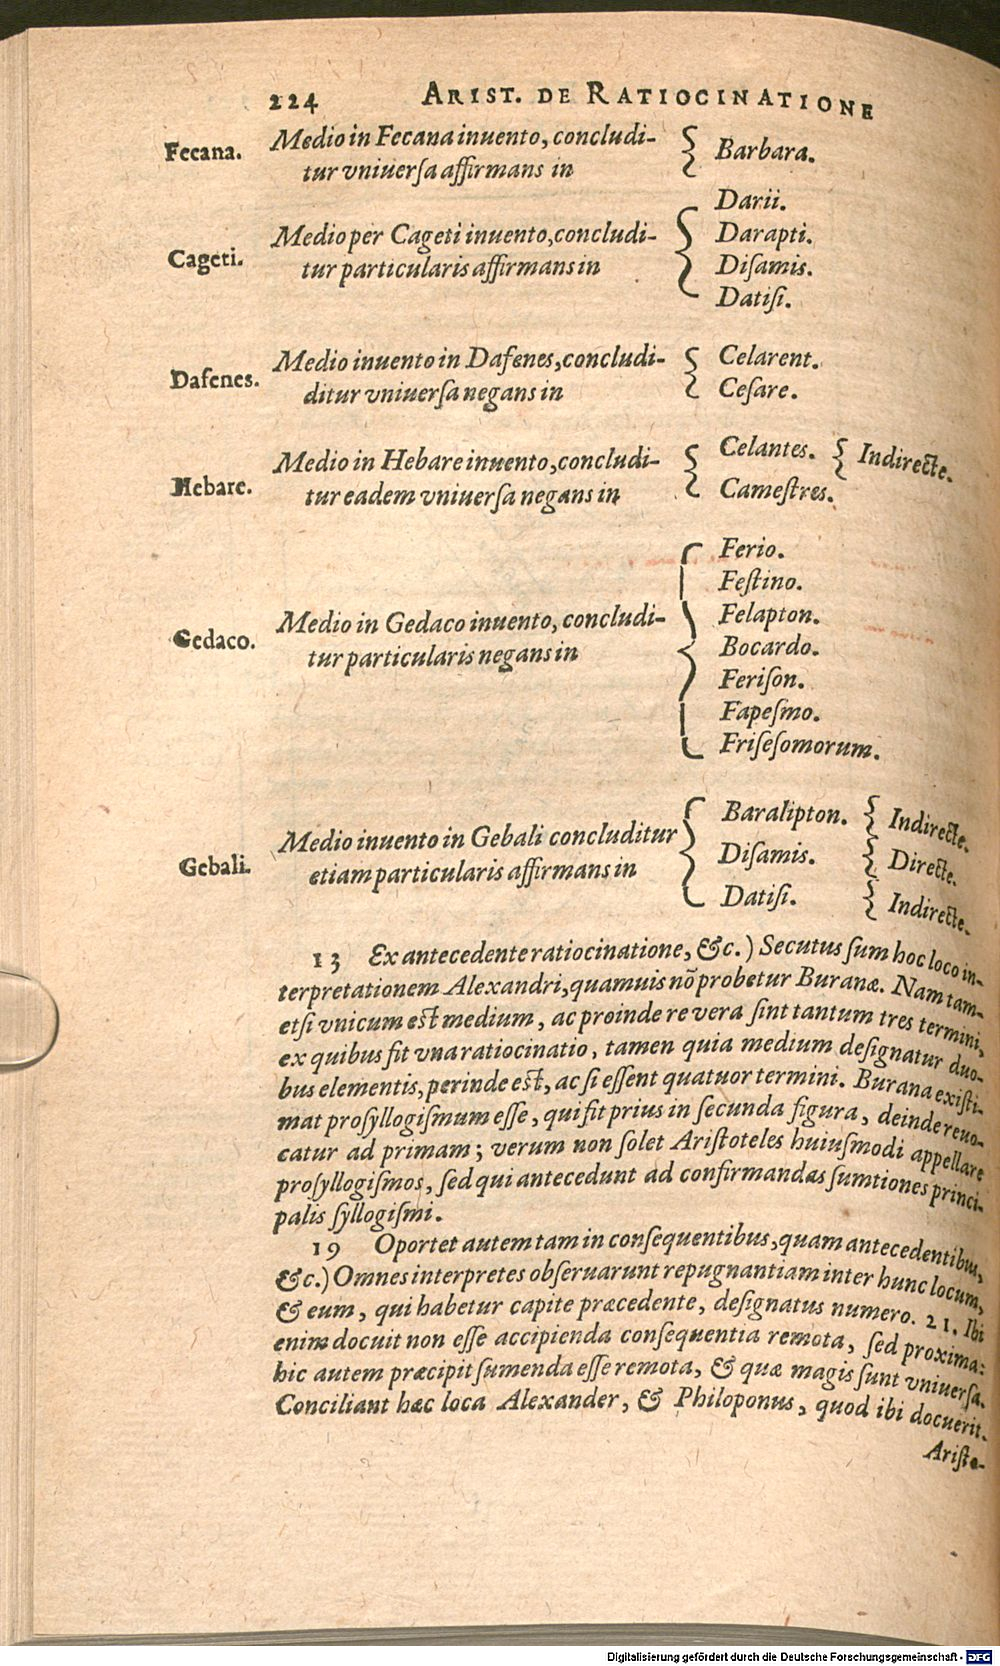 224 ARIST. DE RATIOCINATIONE
Fecana. Medio in Fecana inuento, concludi- { Barbara.
tur vniuersa affirmans in
Cageti. Medio per Cageti inuento, concludi-
tur particularis affirmans in { Darii.
Darapti.
Disamis.
Datisi.
Dafenes. Medio inuento in Dafenes, concludi- { Celarent.
ditur vniuersa negans in Cesare.
Hebare. Medio in Hebare inuento, concludi- { Celantes. { Indirecte.
tur eadem vniuersa negans in Camestres.
Gedaco. Medio in Gedaco inuento, concludi-
tur particularis negans in { Ferio.
Festino.
Felapton.
Bocardo.
Ferison.
Fapesmo.
Frisesomorum.
Gebali. Medio inuento in Gebali concluditur
etiam particularis affirmans in { Baralipton. { Indirecte.
Disamis. { Directe.
Datisi. { Indirecte.
13 Ex antecedente ratiocinatione, &c.) Secutus sum hoc loco in-
terpretationem Alexandri, quamuis nõ probetur Buranæ. Nam tam-
etsi vnicum est medium, ac proinde re vera sint tantum tres termini,
ex quibus fit vna ratiocinatio, tamen quia medium designatur duo-
bus elementis, perinde est, ac si essent quatuor termini. Burana existi-
mat prosyllogismum esse, qui fit prius in secunda figura, deinde reuo-
catur ad primam; verum non solet Aristoteles huiusmodi appellare
prosyllogismos, sed qui antecedunt ad confirmandas sumtiones princi-
palis syllogismi.
19 Oportet autem tam in consequentibus, quam antecedentibus,
&c.) Omnes interpretes obseruarunt repugnantiam inter hunc locum,
& eum, qui habetur capite præcedente, designatus numero. 21. Ibi
enim docuit non esse accipienda consequentia remota, sed proxima:
hic autem præcipit sumenda esse remota, & quæ magis sunt vniuersa.
Conciliant hæc loca Alexander, & Philoponus, quod ibi docuerit.
Aristo-
Digitalisierung gefördert durch die Deutsche Forschungsgemeinschaft - DFG